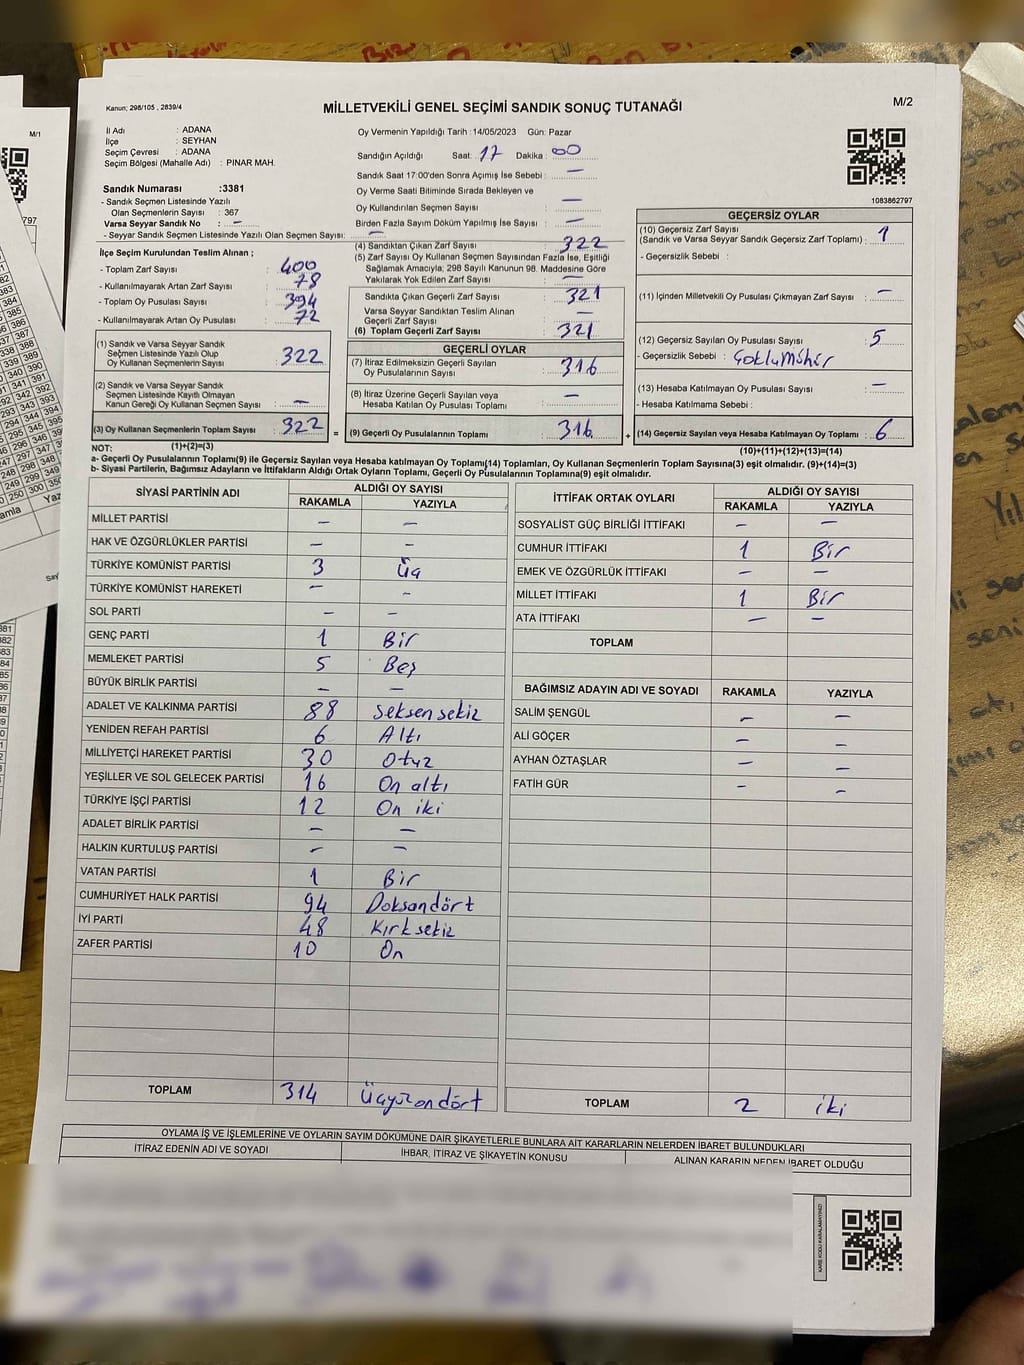 Kanun; 298/105 , 2839/4
MİLLETVEKİLİ GENEL SEÇİMİ SANDIK SONUÇ TUTANAĞI
M/2
İl Adı : ADANA
İlçe : SEYHAN
Seçim Çevresi : ADANA
Seçim Bölgesi (Mahalle Adı) : PINAR MAH.
Sandık Numarası :3381
- Sandık Seçmen Listesinde Yazılı
Olan Seçmenlerin Sayısı : 367
Varsa Seyyar Sandık No : –
- Seyyar Sandık Seçmen Listesinde Yazılı Olan Seçmen Sayısı: –
Oy Vermenin Yapıldığı Tarih :14/05/2023 Gün: Pazar
Sandığın Açıldığı Saat: 17 Dakika : 00
Sandık Saat 17:00'den Sonra Açımış İse Sebebi : –
Oy Verme Saati Bitiminde Sırada Bekleyen ve
Oy Kullandırılan Seçmen Sayısı : –
Birden Fazla Sayım Döküm Yapılmış İse Sayısı : –
1083862797
İlçe Seçim Kurulundan Teslim Alınan ;
- Toplam Zarf Sayısı : 400
- Kullanılmayarak Artan Zarf Sayısı : 78
- Toplam Oy Pusulası Sayısı : 394
- Kullanılmayarak Artan Oy Pusulası : 72
(1) Sandık ve Varsa Seyyar Sandık
Seçmen Listesinde Yazılı Olup
Oy Kullanan Seçmenlerin Sayısı : 322
(2) Sandık ve Varsa Seyyar Sandık
Seçmen Listesinde Kayıtlı Olmayan
Kanun Gereği Oy Kullanan Seçmen Sayısı : –
(3) Oy Kullanan Seçmenlerin Toplam Sayısı : 322 =
(1)+(2)=(3)
(4) Sandıktan Çıkan Zarf Sayısı : 322
(5) Zarf Sayısı Oy Kullanan Seçmen Sayısından Fazla İse, Eşitliği
Sağlamak Amacıyla; 298 Sayılı Kanunun 98. Maddesine Göre
Yakılarak Yok Edilen Zarf Sayısı : –
Sandıkta Çıkan Geçerli Zarf Sayısı : 321
Varsa Seyyar Sandıktan Teslim Alınan
Geçerli Zarf Sayısı : –
(6) Toplam Geçerli Zarf Sayısı : 321
GEÇERLİ OYLAR
(7) İtiraz Edilmeksizin Geçerli Sayılan
Oy Pusulalarının Sayısı : 316
(8) İtiraz Üzerine Geçerli Sayılan veya
Hesaba Katılan Oy Pusulası Toplamı : –
(9) Geçerli Oy Pusulalarının Toplamı : 316 +
GEÇERSİZ OYLAR
(10) Geçersiz Zarf Sayısı : 1
(Sandık ve Varsa Seyyar Sandık Geçersiz Zarf Toplamı)
- Geçersizlik Sebebi :
(11) İçinden Milletvekili Oy Pusulası Çıkmayan Zarf Sayısı : –
(12) Geçersiz Sayılan Oy Pusulası Sayısı : 5
- Geçersizlik Sebebi : Çoklu Mühür
(13) Hesaba Katılmayan Oy Pusulası Sayısı : –
- Hesaba Katılmama Sebebi :
(14) Geçersiz Sayılan veya Hesaba Katılmayan Oy Toplamı : 6
(10)+(11)+(12)+(13)=(14)
NOT:
a- Geçerli Oy Pusulalarının Toplamı(9) ile Geçersiz Sayılan veya Hesaba katılmayan Oy Toplamı(14) Toplamları, Oy Kullanan Seçmenlerin Toplam Sayısına(3) eşit olmalıdır. (9)+(14)=(3)
b- Siyasi Partilerin, Bağımsız Adayların ve İttifakların Aldığı Ortak Oyların Toplamı, Geçerli Oy Pusulalarının Toplamına(9) eşit olmalıdır.
SİYASİ PARTİNİN ADI ALDIĞI OY SAYISI
RAKAMLA YAZIYLA
MİLLET PARTİSİ – –
HAK VE ÖZGÜRLÜKLER PARTİSİ – –
TÜRKİYE KOMÜNİST PARTİSİ 3 Üç
TÜRKİYE KOMÜNİST HAREKETİ – –
SOL PARTİ – –
GENÇ PARTİ 1 Bir
MEMLEKET PARTİSİ 5 Beş
BÜYÜK BİRLİK PARTİSİ – –
ADALET VE KALKINMA PARTİSİ 88 Seksen sekiz
YENİDEN REFAH PARTİSİ 6 Altı
MİLLİYETÇİ HAREKET PARTİSİ 30 Otuz
YEŞİLLER VE SOL GELECEK PARTİSİ 16 On altı
TÜRKİYE İŞÇİ PARTİSİ 12 On iki
ADALET BİRLİK PARTİSİ – –
HALKIN KURTULUŞ PARTİSİ – –
VATAN PARTİSİ 1 Bir
CUMHURİYET HALK PARTİSİ 94 Doksandört
İYİ PARTİ 48 Kırk sekiz
ZAFER PARTİSİ 10 On
TOPLAM 314 Üçyüzondört
İTTİFAK ORTAK OYLARI ALDIĞI OY SAYISI
RAKAMLA YAZIYLA
SOSYALİST GÜÇ BİRLİĞİ İTTİFAKI – –
CUMHUR İTTİFAKI 1 Bir
EMEK VE ÖZGÜRLÜK İTTİFAKI – –
MİLLET İTTİFAKI 1 Bir
ATA İTTİFAKI – –
TOPLAM
BAĞIMSIZ ADAYIN ADI VE SOYADI RAKAMLA YAZIYLA
SALİM ŞENGÜL – –
ALİ GÖÇER – –
AYHAN ÖZTAŞLAR – –
FATİH GÜR – –
TOPLAM 2 iki
OYLAMA İŞ VE İŞLEMLERİNE VE OYLARIN SAYIM DÖKÜMÜNE DAİR ŞİKAYETLERLE BUNLARA AİT KARARLARIN NELERDEN İBARET BULUNDUKLARI
İTİRAZ EDENİN ADI VE SOYADI İHBAR, İTİRAZ VE ŞİKAYETİN KONUSU ALINAN KARARIN NEDEN İBARET OLDUĞU
KARE KODU KARALAMAYINIZ!
M/1